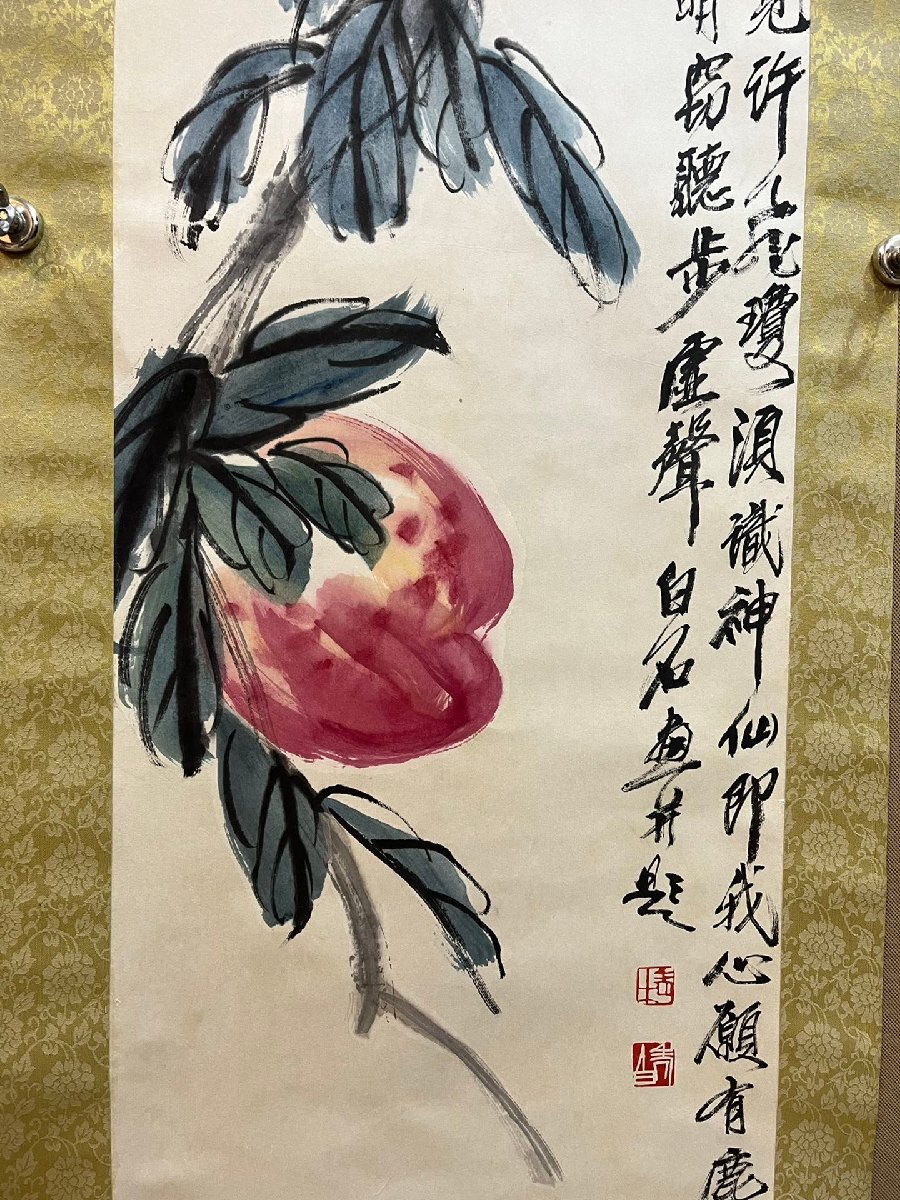 許飛瓊須識神仙即我心願有鹿
竊聽步虛聲白石畫并題